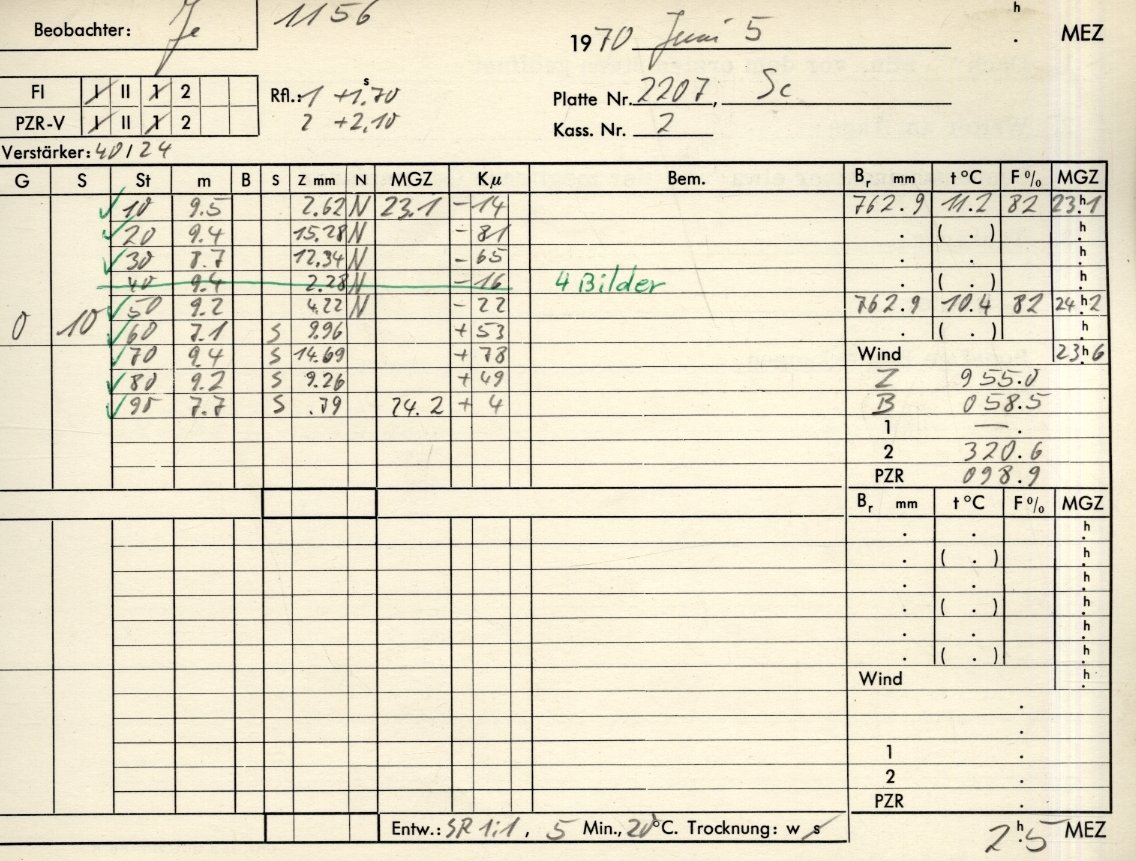 Beobachter: Je 1156 1970 Juni 5 h . MEZ
FI I II 1 2 Rfl.: 1 +1.ˢ70 Platte Nr. 2207, Sc
PZR-V I II 1 2 2 +2.10 Kass. Nr. 2
Verstärker: 40/24
G S St m B S Z mm N MGZ Kμ Bem. Bᵣ mm t °C F % MGZ
✓ 10 9.5 2.62 N 23.1 - 14 762.9 11.2 82 23ʰ.1
✓ 20 9.4 15.28 N - 81 . ( . ) h .
✓ 30 8.7 12.34 N - 65 . . h .
40 9.4 2.28 N - 16 4 Bilder . ( . ) h .
✓ 50 9.2 4.22 N - 22 762.9 10.4 82 24ʰ.2
0 10 ✓ 60 7.1 S 9.96 + 53 . ( . ) h .
✓ 70 9.4 S 14.69 + 78 Wind 23ʰ.6
✓ 80 9.2 S 9.26 + 49 Z 955.0
✓ 90 7.7 S .79 24.2 + 4 B 058.5
1 — .
2 320.6
PZR 098.9
Bᵣ mm t °C F % MGZ
. . h .
. ( . ) h .
. . h .
. ( . ) h .
. . h .
. ( . ) h .
Wind h .
.
.
1 .
2 .
PZR .
Entw.: SR 1:1, 5 Min., 20 °C. Trocknung: w s 2ʰ.5 MEZ